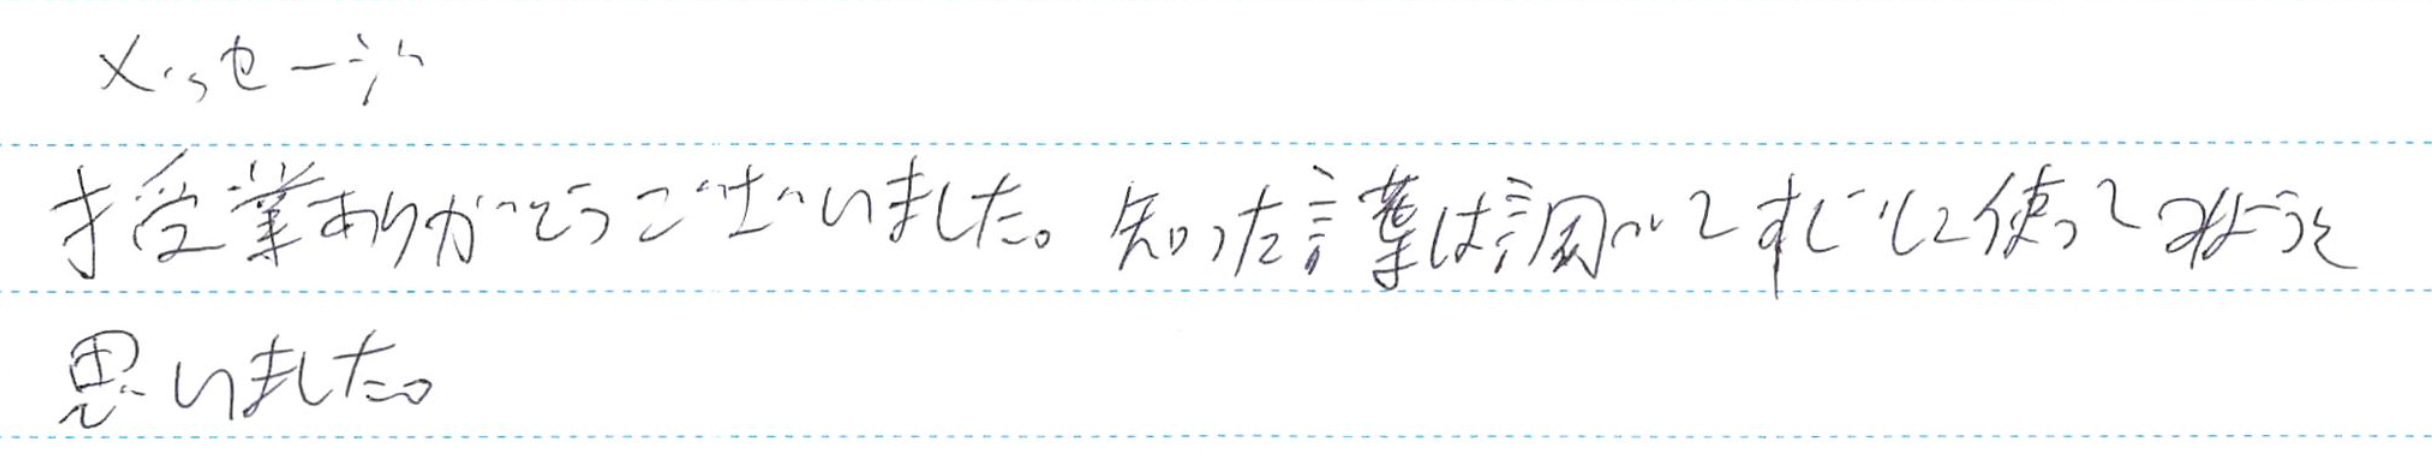 メッセージ
授業ありがとうございました。知った言葉は調べてすぐに使ってみようと
思いました。